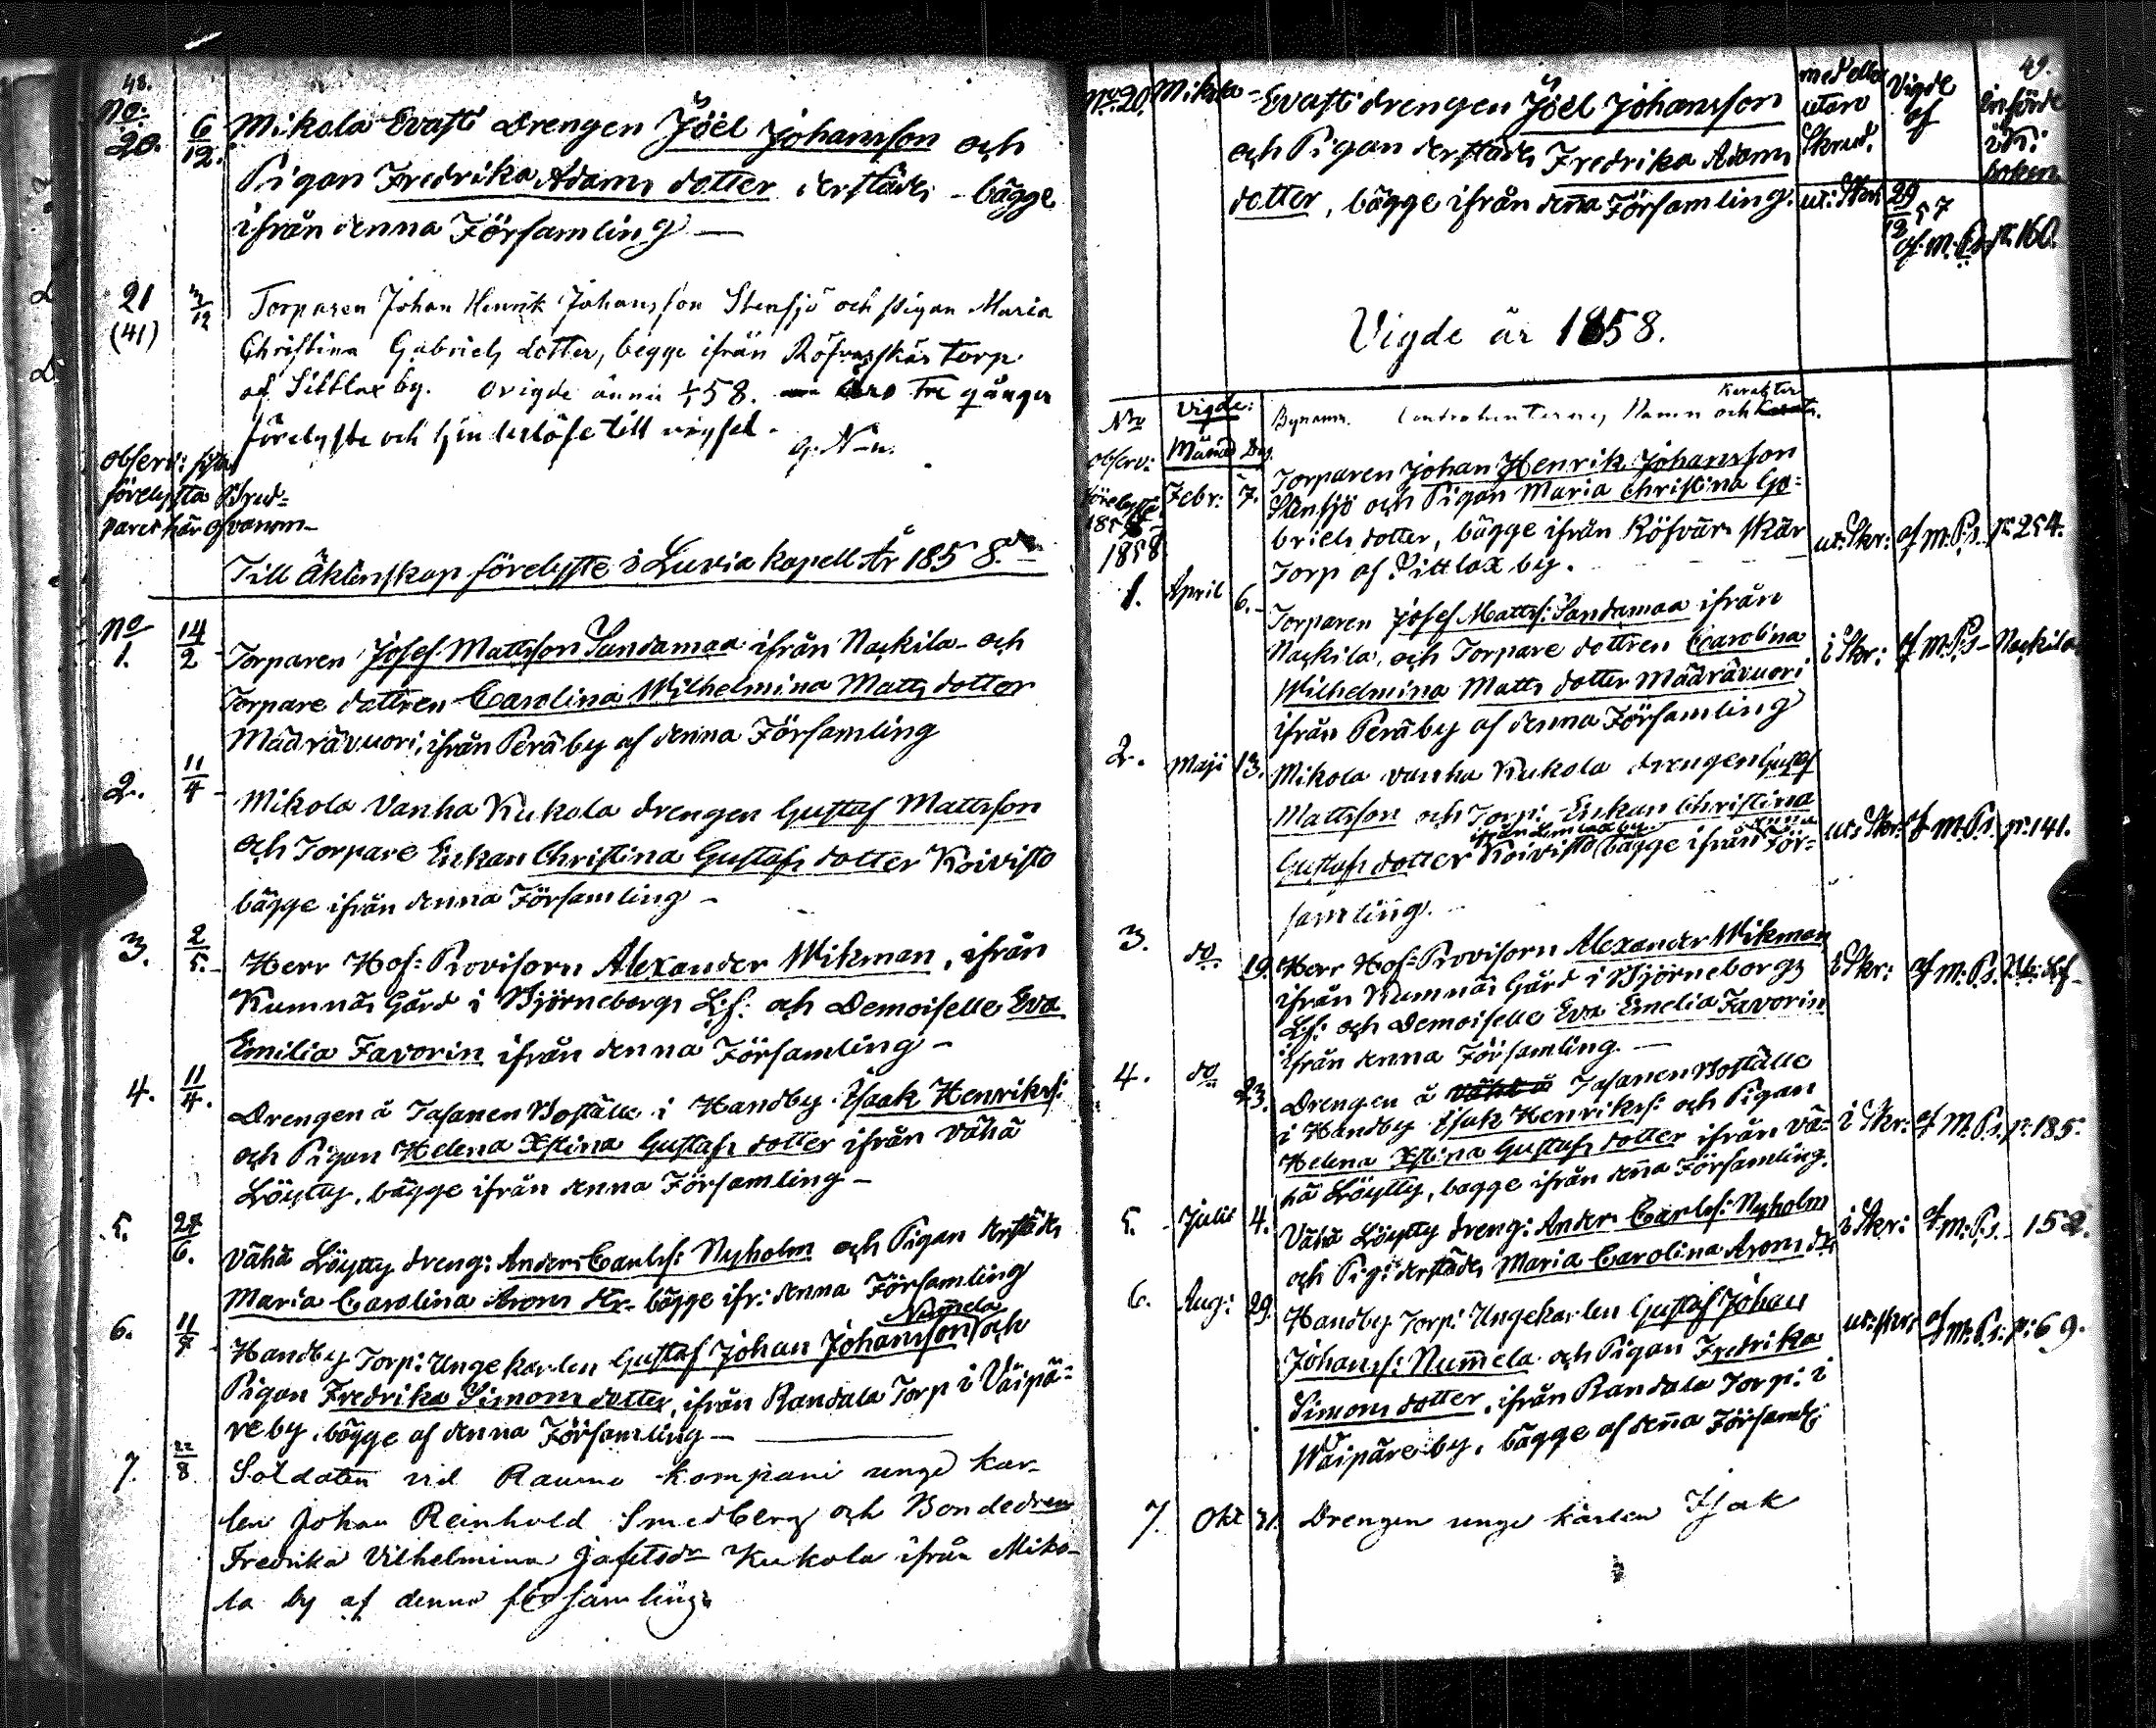 48.
No. 20. 6/12. Mikola Evasti Drengen Joël Johansson och
Pigan Fredrika Adams dotter derstädes - bägge
ifrån denna Församling —
21 (41) 3/12 Torparen Johan Henrik Johansson Stensjö och pigan Maria
Christina Gabriels dotter, begge ifrån Röfvarskärs torp
af Sittlax by. Ovigde ännu 58. äro tre gånger
förelyste och hinderlöse till vigsel.
G. N-n.
Observ: sista
förelysta Brud-
paret här ofvanom-
Till Äktenskap förelyste i Luvia kapell År 1858.
No 1. 14/2 Torparen Josef Mattsson Sandamaa ifrån Nackila - och
Torpare dottren Carolina Wilhelmina Matts dotter
Mädrävuori, ifrån Peräby af denna Församling
2. 11/4 Mikola Vanha Kukola drengen Gustaf Mattsson
och Torpare Enkan Christina Gustafs dotter Koivisto
bägge ifrån denna Församling -
3. 2/5. Herr Hof: Provisorn Alexander Wikman, ifrån
Kumnäs Gård i Björneborgs L:f: och Demoiselle Eva
Emilia Favorin ifrån denna Församling -
4. 11/4. Drengen å Tasanen Boställe i Handby Isaak Henrikss:
och Pigan Helena Xstina Gustafs dotter ifrån Vähä
Löytty, bägge ifrån denna Församling -
5. 27/6. Vähä Löytty dreng: Anders Carlss: Nyholm och Pigan derstädes
Maria Carolina Arons dr. bägge ifr: denna Församling
Num̄ela
6. 11/7 Handby Torp: Ungekarlen Gustaf Johan Johansson och
Pigan Fredrika Simons dotter, ifrån Randala Torp i Väipä-
re by, bägge af denna Församling —
7. 22/8 Soldaten vid Raumo kompani unge kar-
len Johan Reinhold Smedberg och Bonde
Fredrika Vilhelmina Kukola ifrån Miko-
la by af denna församling
49.
No. 20. Mikola - Evasti drengen Joël Johansson
och Pigan derstädes Fredrika Adams
dotter, bägge ifrån den̄a Församling.
med eller
utan
Skrud.
Vigde
af
införde
i K:
boken
ut: Skr: 29/12 57
af M. Ps. p: 160.
Vigde år 1858.
No Vigde: Bynamn. Contrahenternes Namn och Karakter
Månad Dag.
Observ: förelyste
1858
Febr: 7. Torparen Johan Henrik Johansson
Stensjö och Pigan Maria Christina Ga-
briels dotter, bägge ifrån Röfvars skär
Torp af Sittlax by. ut: Skr: af M. Ps. p: 254.
1. April 6. Torparen Josef Mattss: Sandamaa ifrån
Nackila, och Torpare dottren Carolina
Wilhelmina Matts dotter Mädrävuori
ifrån Peräby af denna Församling i Skr: af M. Ps - Nackila.
2. Maji 13. Mikola Vanha Kukola drengen Gustaf
Mattsson och Torp: Enkan Christina
Gustafs dotter Koivisto bägge ifrån denna För-
samling. ut: Skr: af M. Ps. p: 141.
3. do 19. Herr Hof: Provisorn Alexander Wikman
ifrån Kumnäs Gård i Björneborgs
L:f: och Demoiselle Eva Emelia Favorin
ifrån denna Församling. — i Skr: af M. Ps.
4. do 23. Drengen å Tasanen Boställe
i Handby Isak Henrikss: och Pigan
Helena Xstina Gustafs dotter ifrån Vä-
hä Löytty, bägge ifrån den̄a Församling. i Skr: af M. Ps. p: 185.
5. Julii 4. Vähä Löytty dreng: Anders Carlss: Nyholm
och Pig: derstädes Maria Carolina Arons dr i Skr: af M. Ps. 152.
6. Aug: 29. Handby Torp: Ungekarlen Gustaf Johan
Johanss: Num̄ela och Pigan Fredrika
Simons dotter, ifrån Randala Torp: i
Waipäre by, bägge af den̄a Församl: ut: skr: af M. Ps: p: 69.
7. Okt 21. Drengen unge karlen Isak